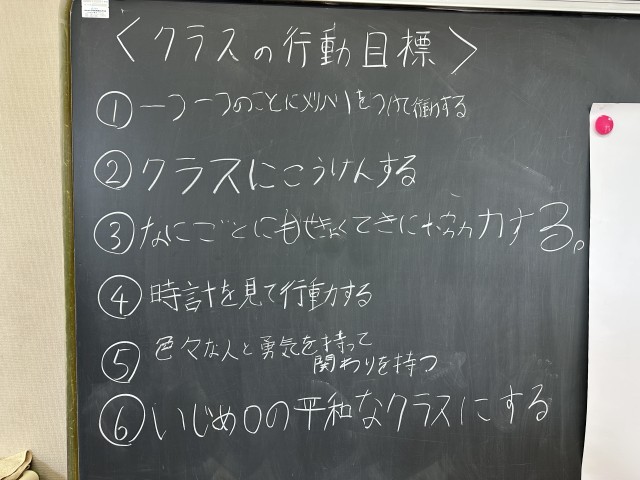 〈クラスの行動目標〉
① 一つ一つのことにメリハリをつけて行動する
② クラスにこうけんする
③ なにごとにもせきょくてきに協力する。
④ 時計を見て行動する
⑤ 色々な人と勇気を持って
関わりを持つ
⑥ いじめ0の平和なクラスにする